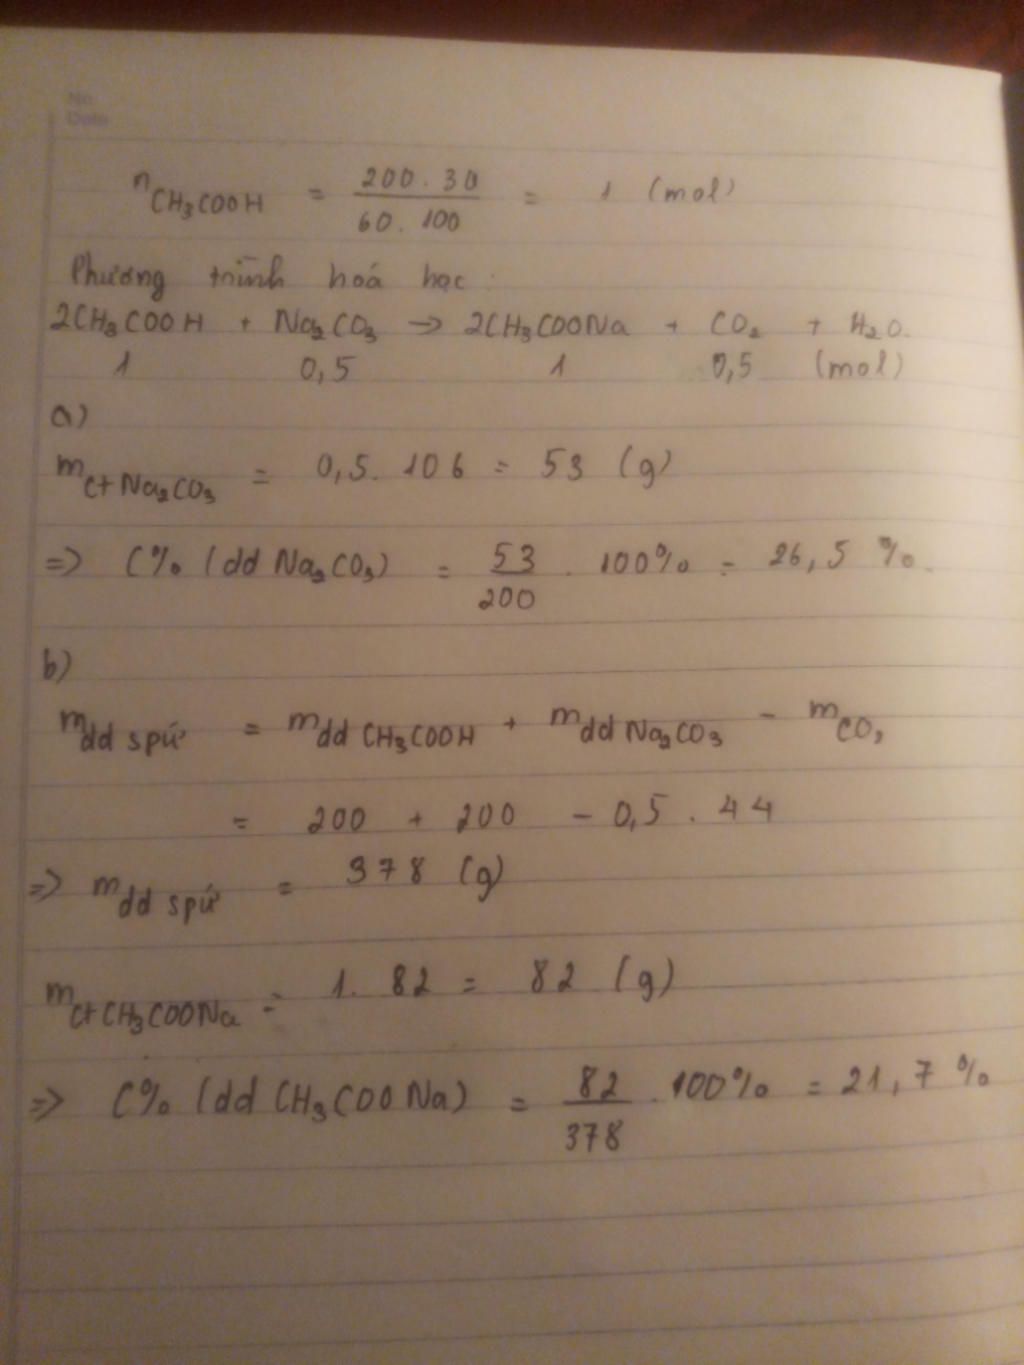 No.
Date
nCH₃COOH = 200.30 / 60.100 = 1 (mol)
Phương trình hoá học:
2CH₃COOH + Na₂CO₃ → 2CH₃COONa + CO₂ + H₂O.
1 0,5 1 0,5 (mol)
a)
mct Na₂CO₃ = 0,5.106 = 53 (g)
=> C% (dd Na₂CO₃) = 53/200 . 100% = 26,5 %.
b)
mdd spứ = mdd CH₃COOH + mdd Na₂CO₃ - mCO₂
= 200 + 200 - 0,5.44
=> mdd spứ = 378 (g)
mct CH₃COONa = 1.82 = 82 (g)
=> C% (dd CH₃COONa) = 82/378 . 100% = 21,7 %